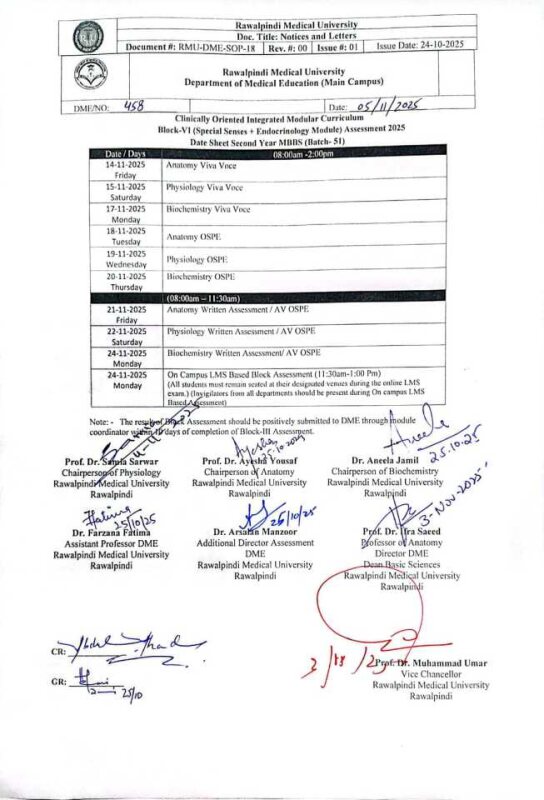 Rawalpindi Medical University
Doc. Title: Notices and Letters
Document #: RMU-DME-SOP-18 Rev. #: 00 Issue #: 01 Issue Date: 24-10-2025
Rawalpindi Medical University
Department of Medical Education (Main Campus)
DME/NO: 458 Date: 05/11/2025
Clinically Oriented Integrated Modular Curriculum
Block-VI (Special Senses + Endocrinology Module) Assessment 2025
Date Sheet Second Year MBBS (Batch- 51)
Date / Days 08:00am -2:00pm
14-11-2025 Anatomy Viva Voce
Friday
15-11-2025 Physiology Viva Voce
Saturday
17-11-2025 Biochemistry Viva Voce
Monday
18-11-2025 Anatomy OSPE
Tuesday
19-11-2025 Physiology OSPE
Wednesday
20-11-2025 Biochemistry OSPE
Thursday
(08:00am – 11:30am)
21-11-2025 Anatomy Written Assessment / AV OSPE
Friday
22-11-2025 Physiology Written Assessment / AV OSPE
Saturday
24-11-2025 Biochemistry Written Assessment/ AV OSPE
Monday
24-11-2025 On Campus LMS Based Block Assessment (11:30am-1:00 Pm)
Monday (All students must remain seated at their designated venues during the online LMS
exam.) (Invigilators from all departments should be present during On campus LMS
Based Assessment)
Note: - The result of Block Assessment should be positively submitted to DME through module
coordinator within 10 days of completion of Block-III Assessment.
Ayesha Aneela
25.10.2025 25.10.25
Prof. Dr. Samia Sarwar Prof. Dr. Ayesha Yousaf Dr. Aneela Jamil
Chairperson of Physiology Chairperson of Anatomy Chairperson of Biochemistry
Rawalpindi Medical University Rawalpindi Medical University Rawalpindi Medical University
Rawalpindi Rawalpindi Rawalpindi
Fatima
25/10/25 25/10/25 3-Nov-2025
Dr. Farzana Fatima Dr. Arsalan Manzoor Prof. Dr. Ifra Saeed
Assistant Professor DME Additional Director Assessment Professor of Anatomy
Rawalpindi Medical University DME Director DME
Rawalpindi Rawalpindi Medical University Dean Basic Sciences
Rawalpindi Rawalpindi Medical University
Rawalpindi
CR:
GR: 25/10
Prof. Dr. Muhammad Umar
Vice Chancellor
Rawalpindi Medical University
Rawalpindi